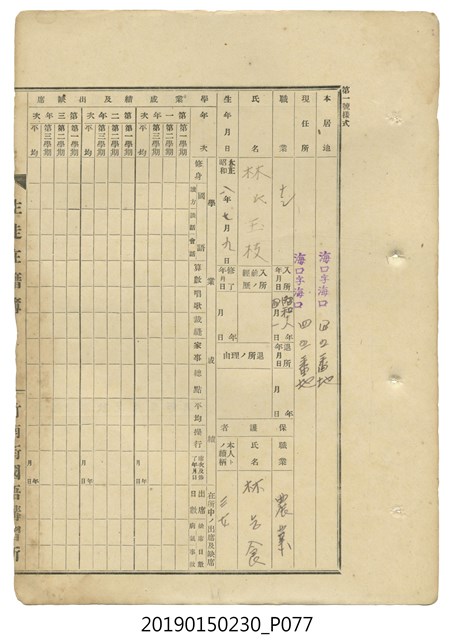 第一號樣式
本居地
海口字海口
番地
現住所
海口字海口
番地
職業
入所年月日
昭和
年
月
日
退所年月日
年
月
日
保護者
職業
農業
氏名
林氏玉枝
入所前ノ經歷
退所ノ理由
氏名
林
生年月日
大正
昭和
八年七月九日
修了年月日
年
月
日
本人トノ續柄
三女
學年次
學業成績
在所中ノ出席及缺席
修身
國語
算數
唱歌
裁縫
家事
總點
平均
操行
出席日數
學業成績及出缺席
第一學期
第二學期
第三學期
平均
第一學期
第二學期
第三學期
平均
第一學期
第二學期
第三學期
平均
生徒在籍簿
國語講習所
20190150230_P077